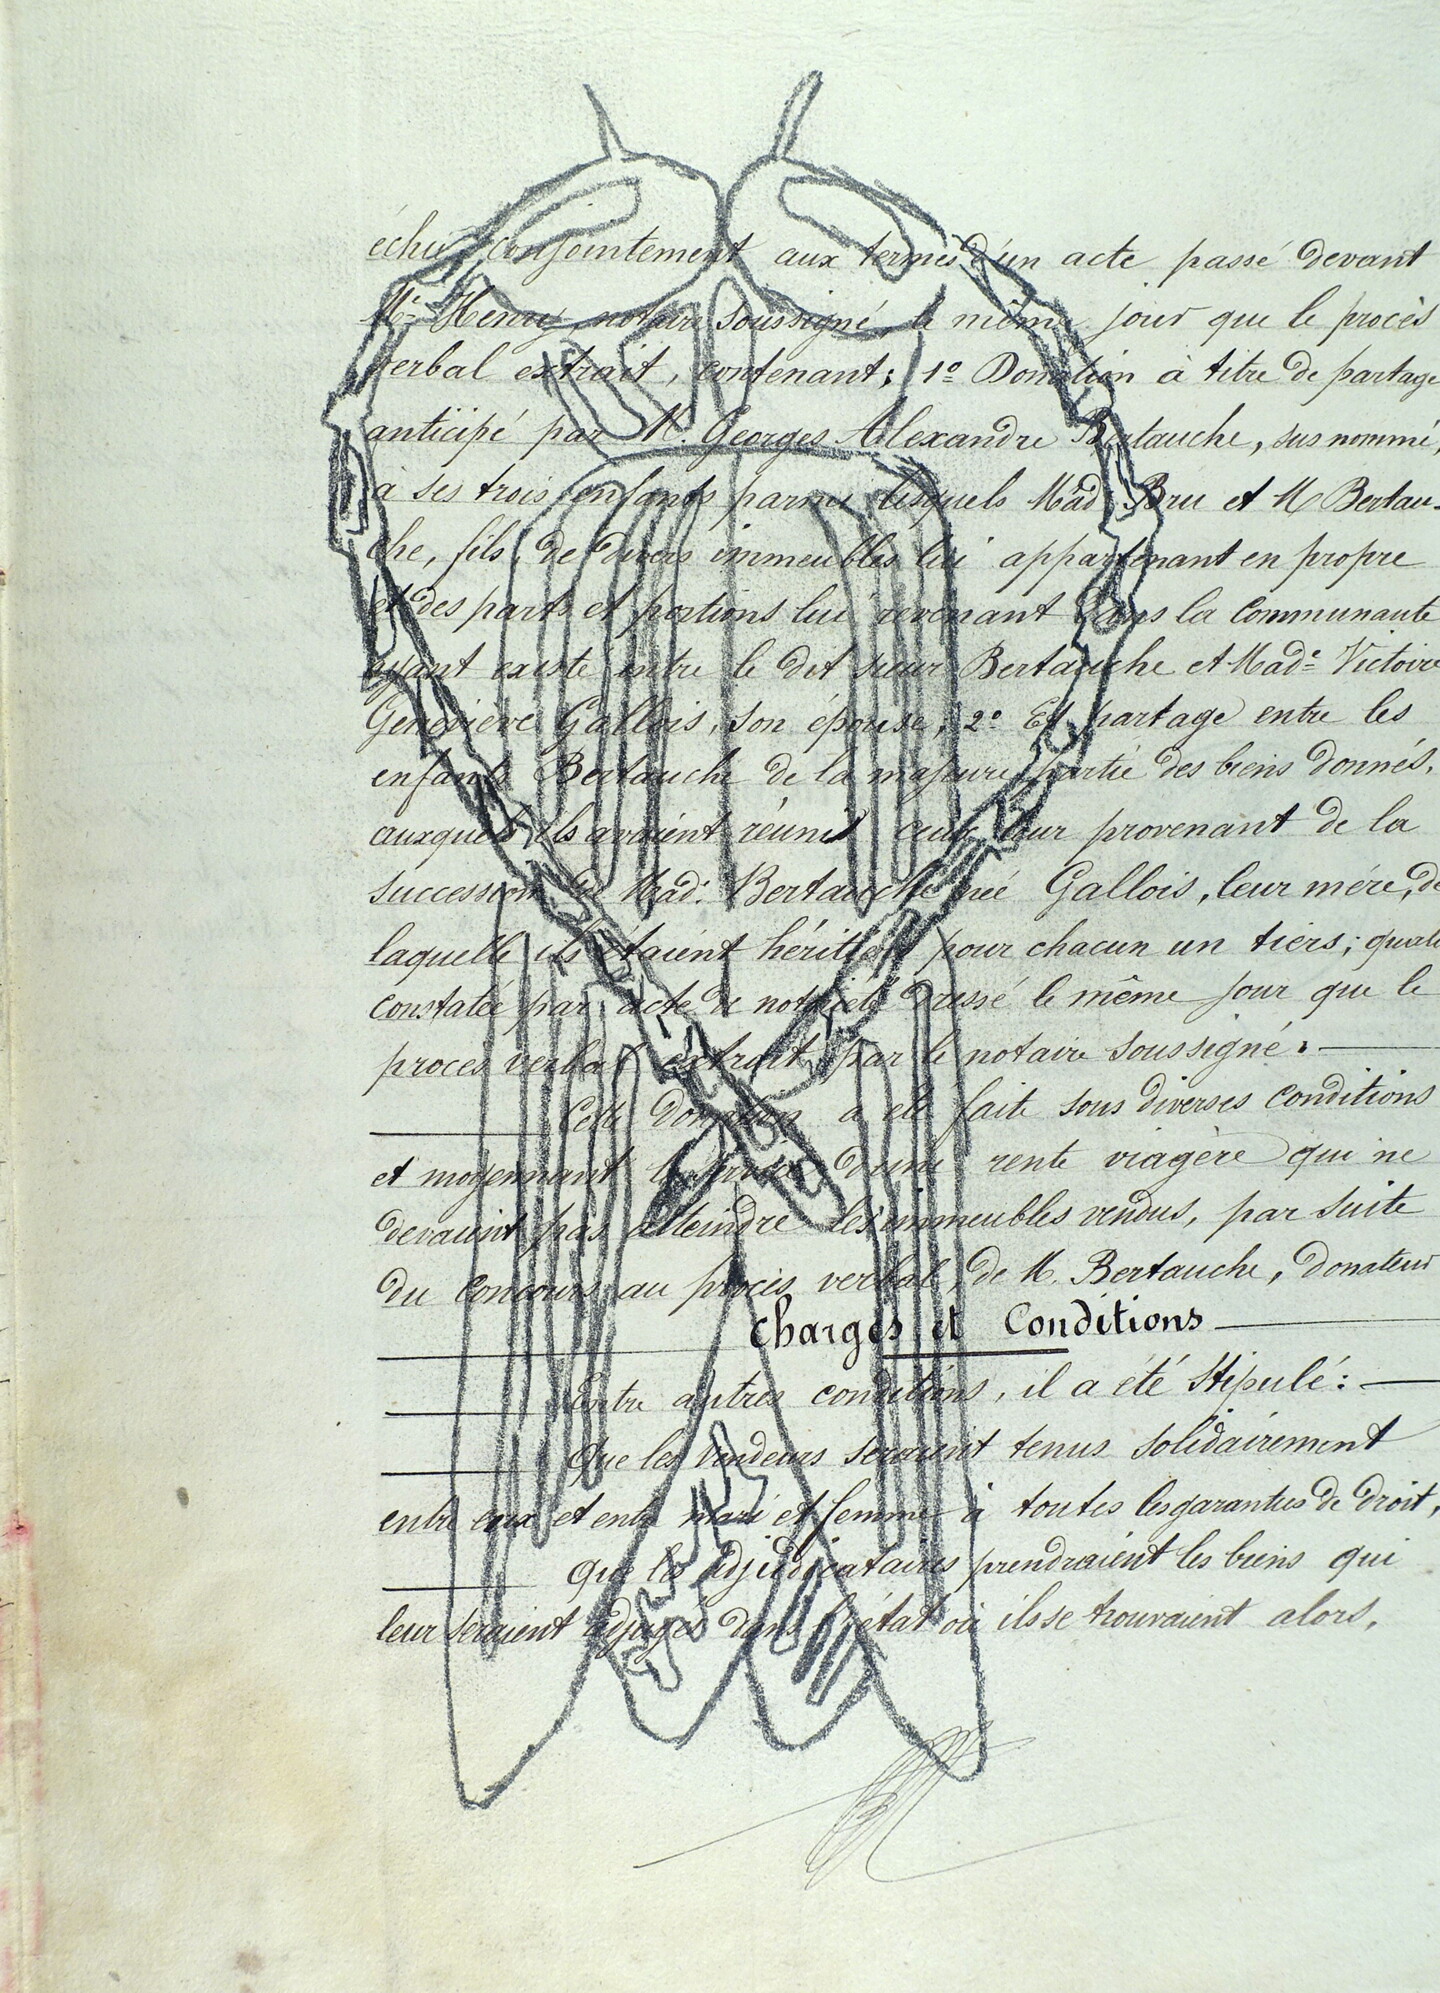 échu conjointement aux termes d'un acte passé devant
Me Henry, notaire soussigné, le même jour que le procès
verbal extrait, contenant: 1o Donation à titre de partage
anticipé par M. Georges Alexandre Bertauche, susnommé,
à ses trois enfants parmi lesquels Made Bru et M Bertau-
che, fils, de divers immeubles lui appartenant en propre
et des parts et portions lui revenant dans la communauté
ayant existé entre le dit sieur Bertauche et Made Victoire
Geneviève Gallois, son épouse; 2o Et partage entre les
enfants Bertauche de la majeure partie des biens donnés,
auxquels ils avaient réuni ceux leur provenant de la
succession de Made Bertauche née Gallois, leur mère, de
laquelle ils étaient héritiers pour chacun un tiers; qualité
constatée par acte de notoriété dressé le même jour que le
procès verbal extrait, par le notaire soussigné.
Cette donation a été fait sous diverses conditions
et moyennant le d'une rente viagère qui ne
devaient pas atteindre les immeubles vendus, par suite
du concours au procès verbal, de M. Bertauche, donateur
Charges et Conditions
Entre autres conditions, il a été stipulé:
Que les vendeurs seraient tenus solidairement
entre eux et entre mari et femme à toutes les garanties de droit,
Que les adjudicataires prendraient les biens qui
leur seraient adjugés dans l'état où ils se trouvaient alors,